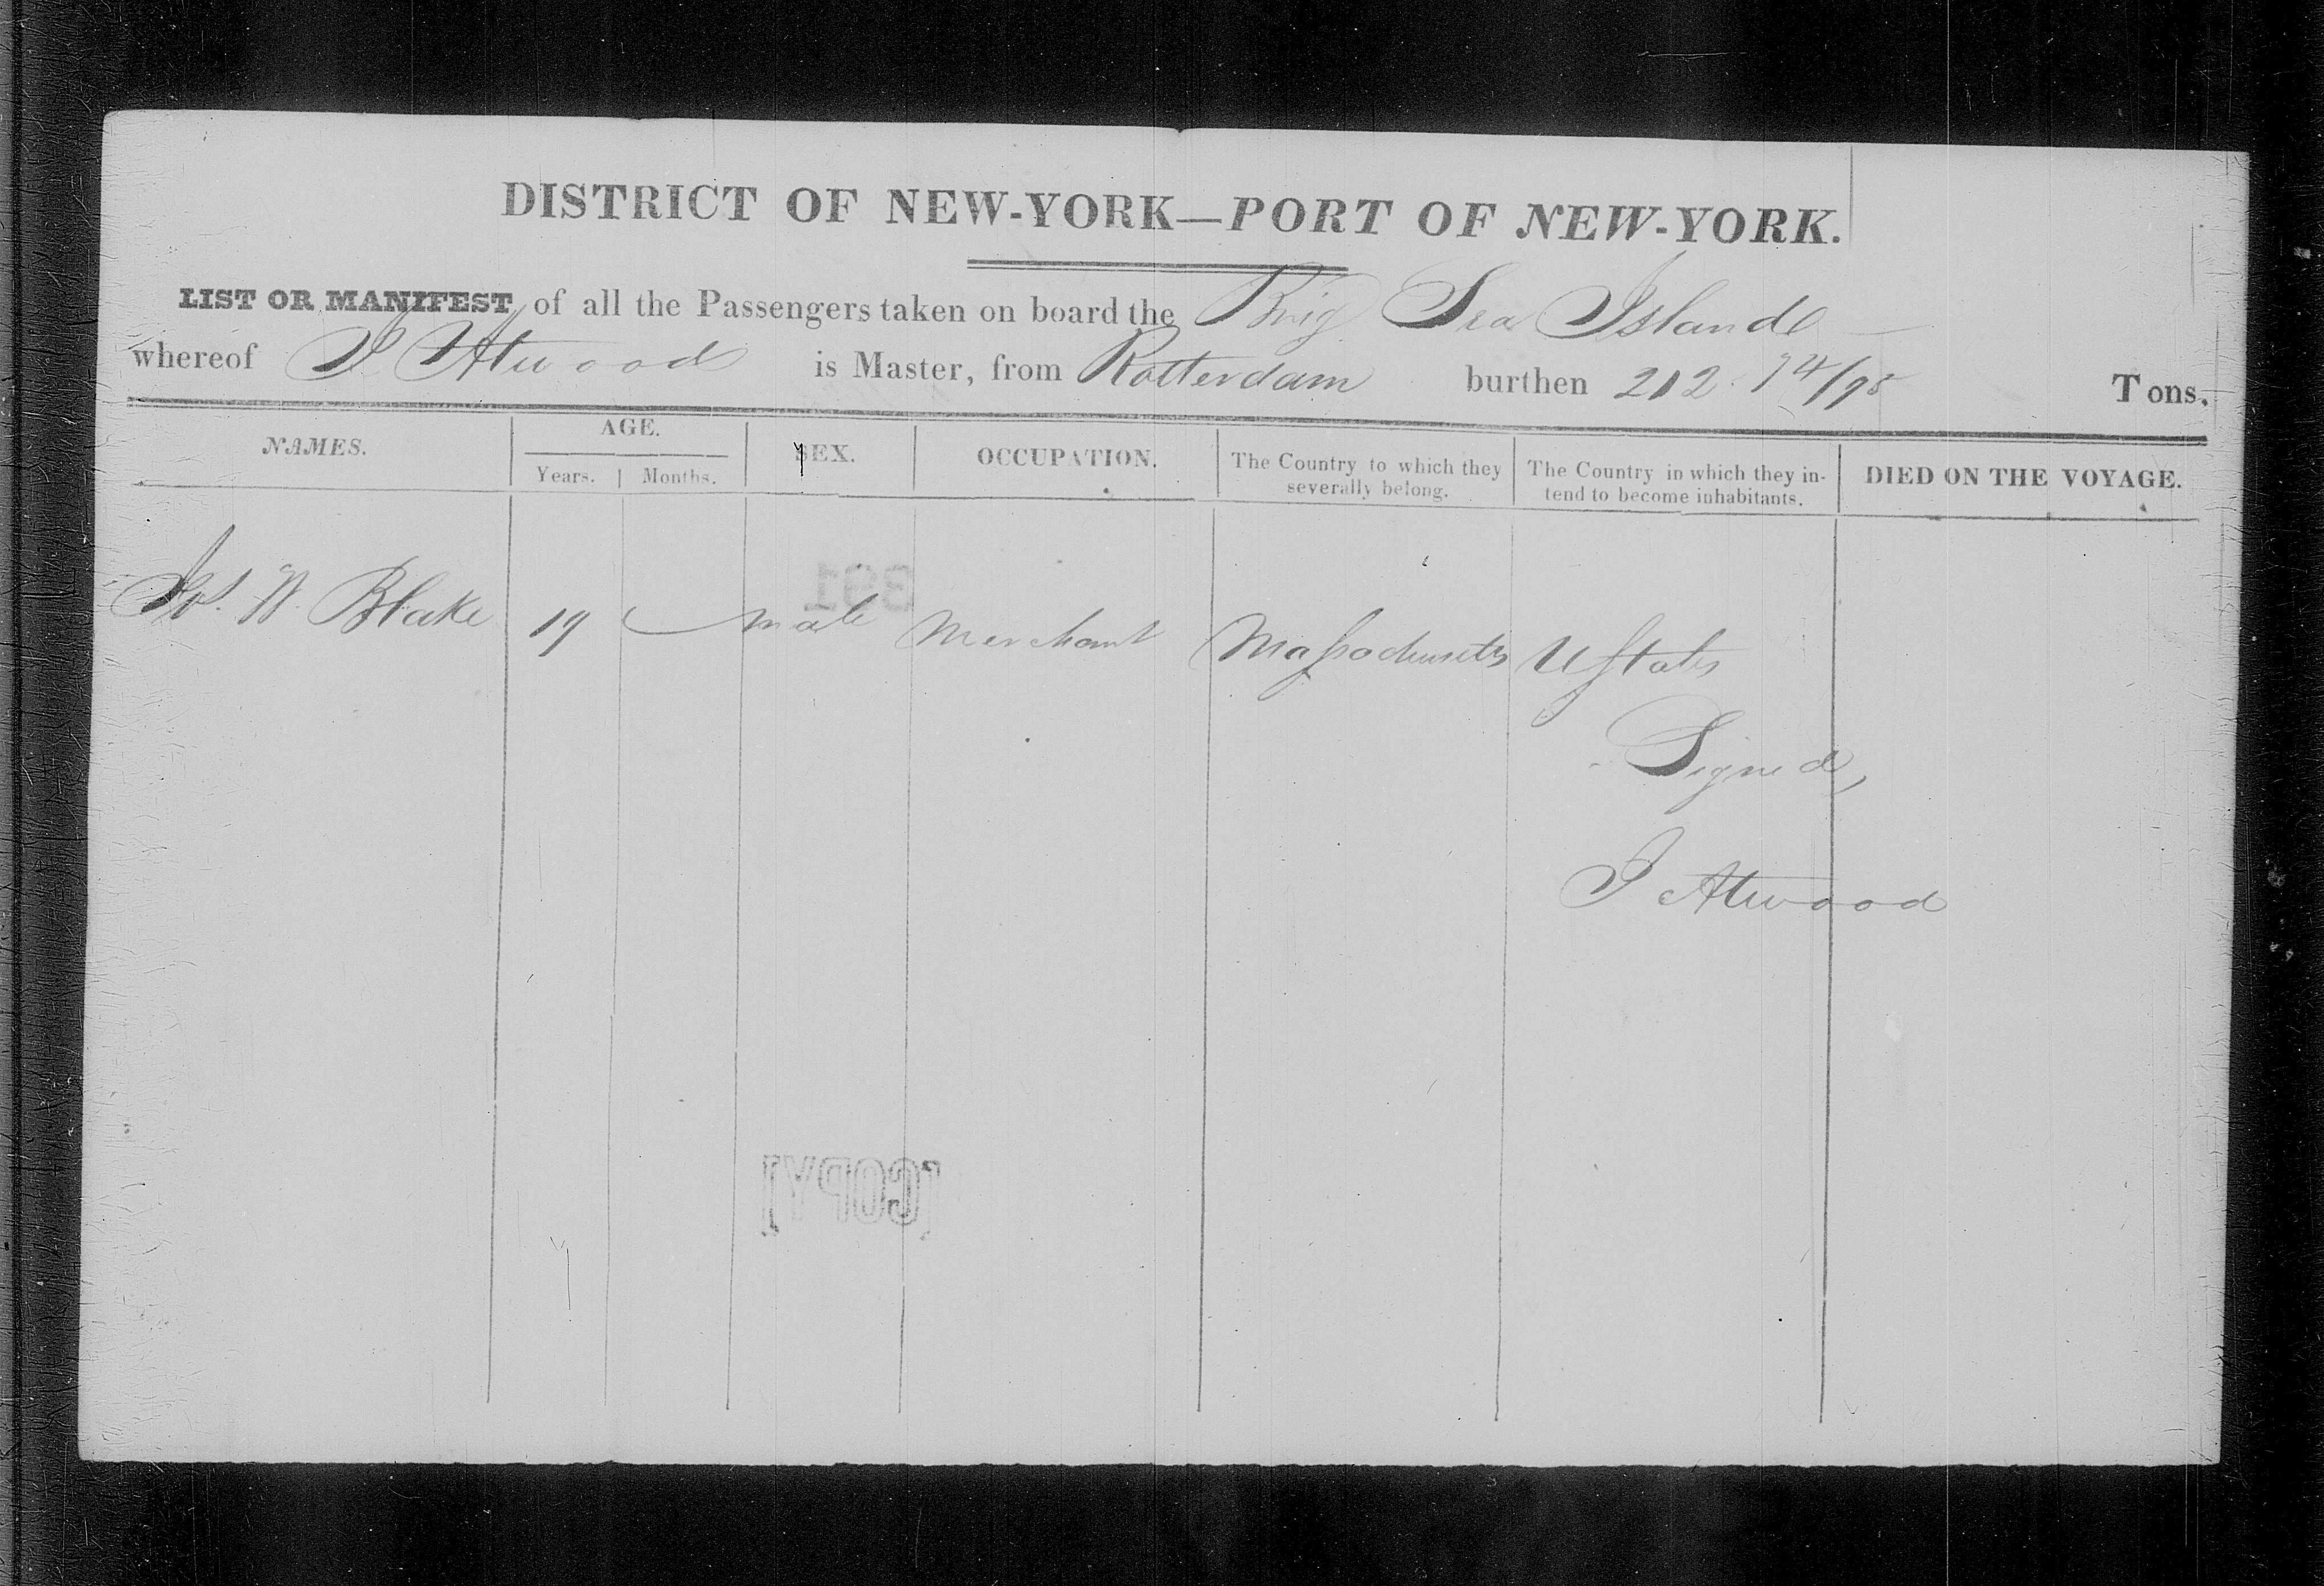 DISTRICT OF NEW-YORK—PORT OF NEW-YORK.
LIST OR MANIFEST of all the Passengers taken on board the Brig Sea Island
whereof J Atwood is Master, from Rotterdam burthen 212 74/95 Tons.
NAMES. AGE. SEX. OCCUPATION. The Country to which they severally belong. The Country in which they intend to become inhabitants. DIED ON THE VOYAGE.
Years. Months.
391
W. Blake 19 male Merchant Massachusetts UStates
Signed,
J Atwood
[COPY]